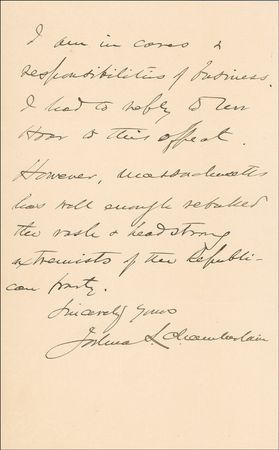 I am in cares &
responsibilities of business.
I had to reply to
Hoar to this effect.
However, Massachusetts
has well enough rebuked
the rash & headstrong
extremists of the Republi-
can party.
Sincerely yours
Joshua L. Chamberlain